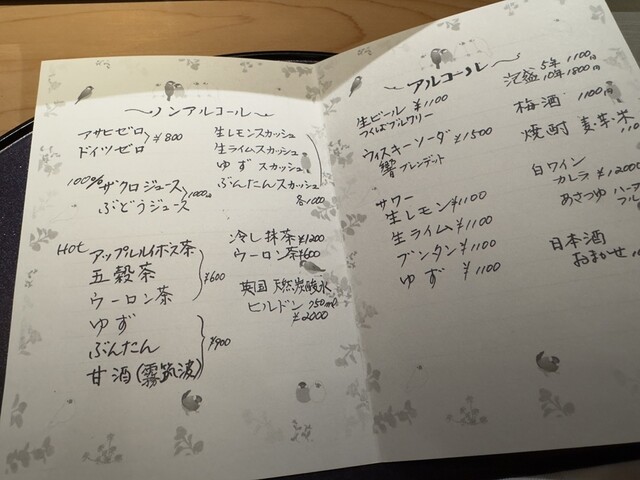 ノンアルコール
アサヒゼロ
ドイツゼロ
¥800
100%ザクロジュース
ぶどうジュース
1000円
Hot アップルルイボス茶
五穀茶
ウーロン茶
¥600
ゆず
ぶんたん
甘酒(霧筑波)
¥900
生レモンスカッシュ
生ライムスカッシュ
ゆずスカッシュ
ぶんたんスカッシュ
各1000
冷し抹茶 ¥1200
ウーロン茶 ¥600
英国 天然炭酸水
ヒルドン 750ml
¥2000
アルコール
生ビール ¥1100
つくばブルワリー
ウィスキーソーダ ¥1500
響 ブレンデット
サワー
生レモン ¥1100
生ライム ¥1100
ブンタン ¥1100
ゆず ¥1100
泡盛 5年 1100円
10年 1800円
梅酒 1100円
焼酎 麦・芋・米
白ワイン
カレラ ¥12000
あさつゆ ハーフ
フル
日本酒
おまかせ